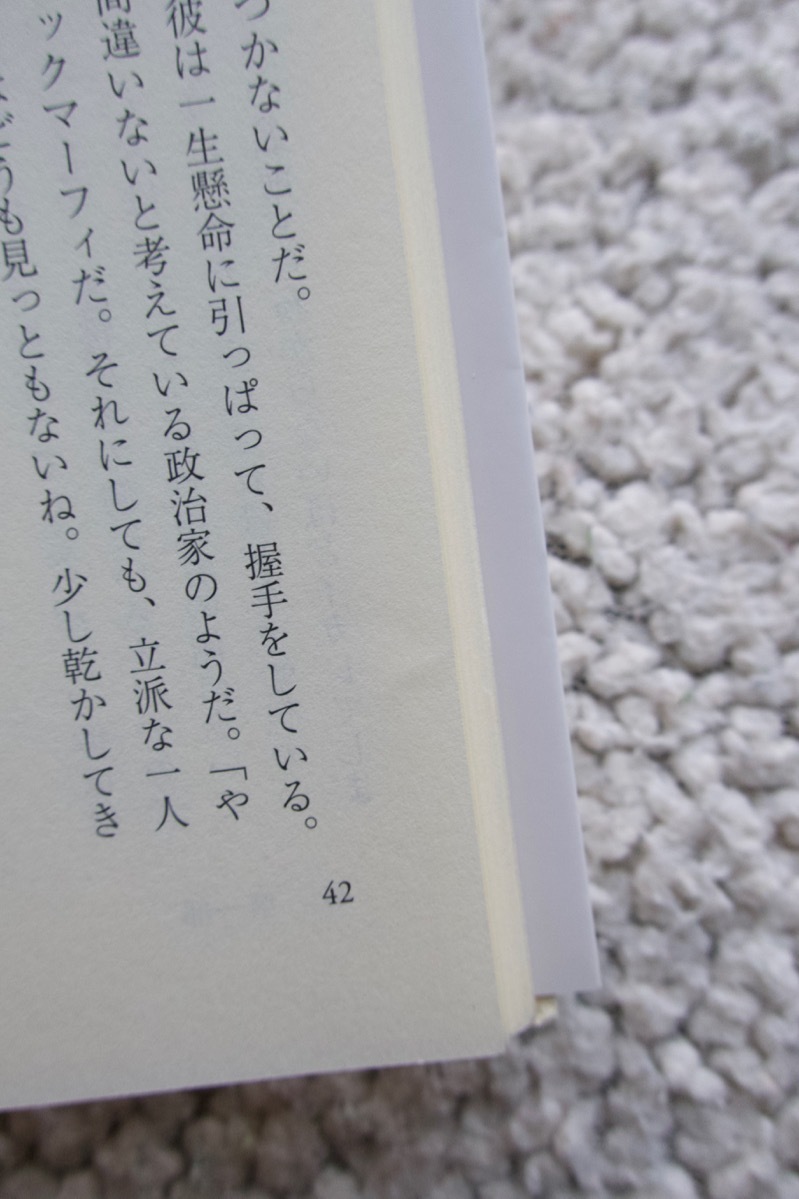 つかないことだ。
彼は一生懸命に引っぱって、握手をしている。
間違いないと考えている政治家のようだ。「や
ックマーフィだ。それにしても、立派な一人
どうも見っともないね。少し乾かしてき
42